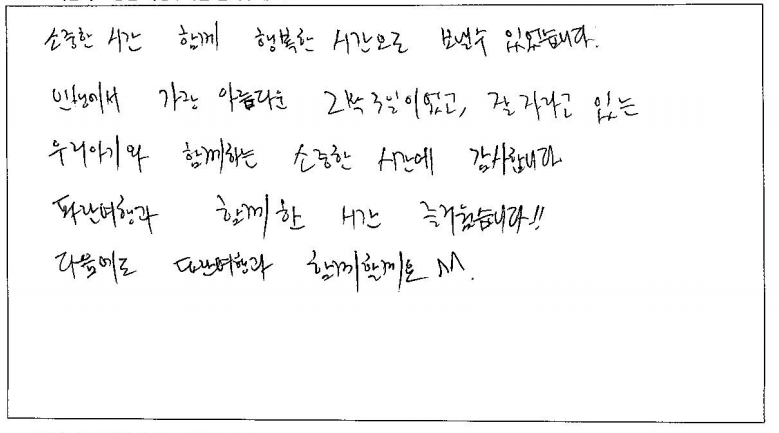 소중한 시간 함께 행복한 시간으로 보낼수 있었습니다.
인생에서 가장 아름다운 2박3일이었고, 잘 자라고 있는
우리아기와 함께하는 소중한 시간에 감사합니다
파란여행과 함께 한 시간 즐거웠습니다!!
다음에도 파란여행과 함께할께요 ^^.